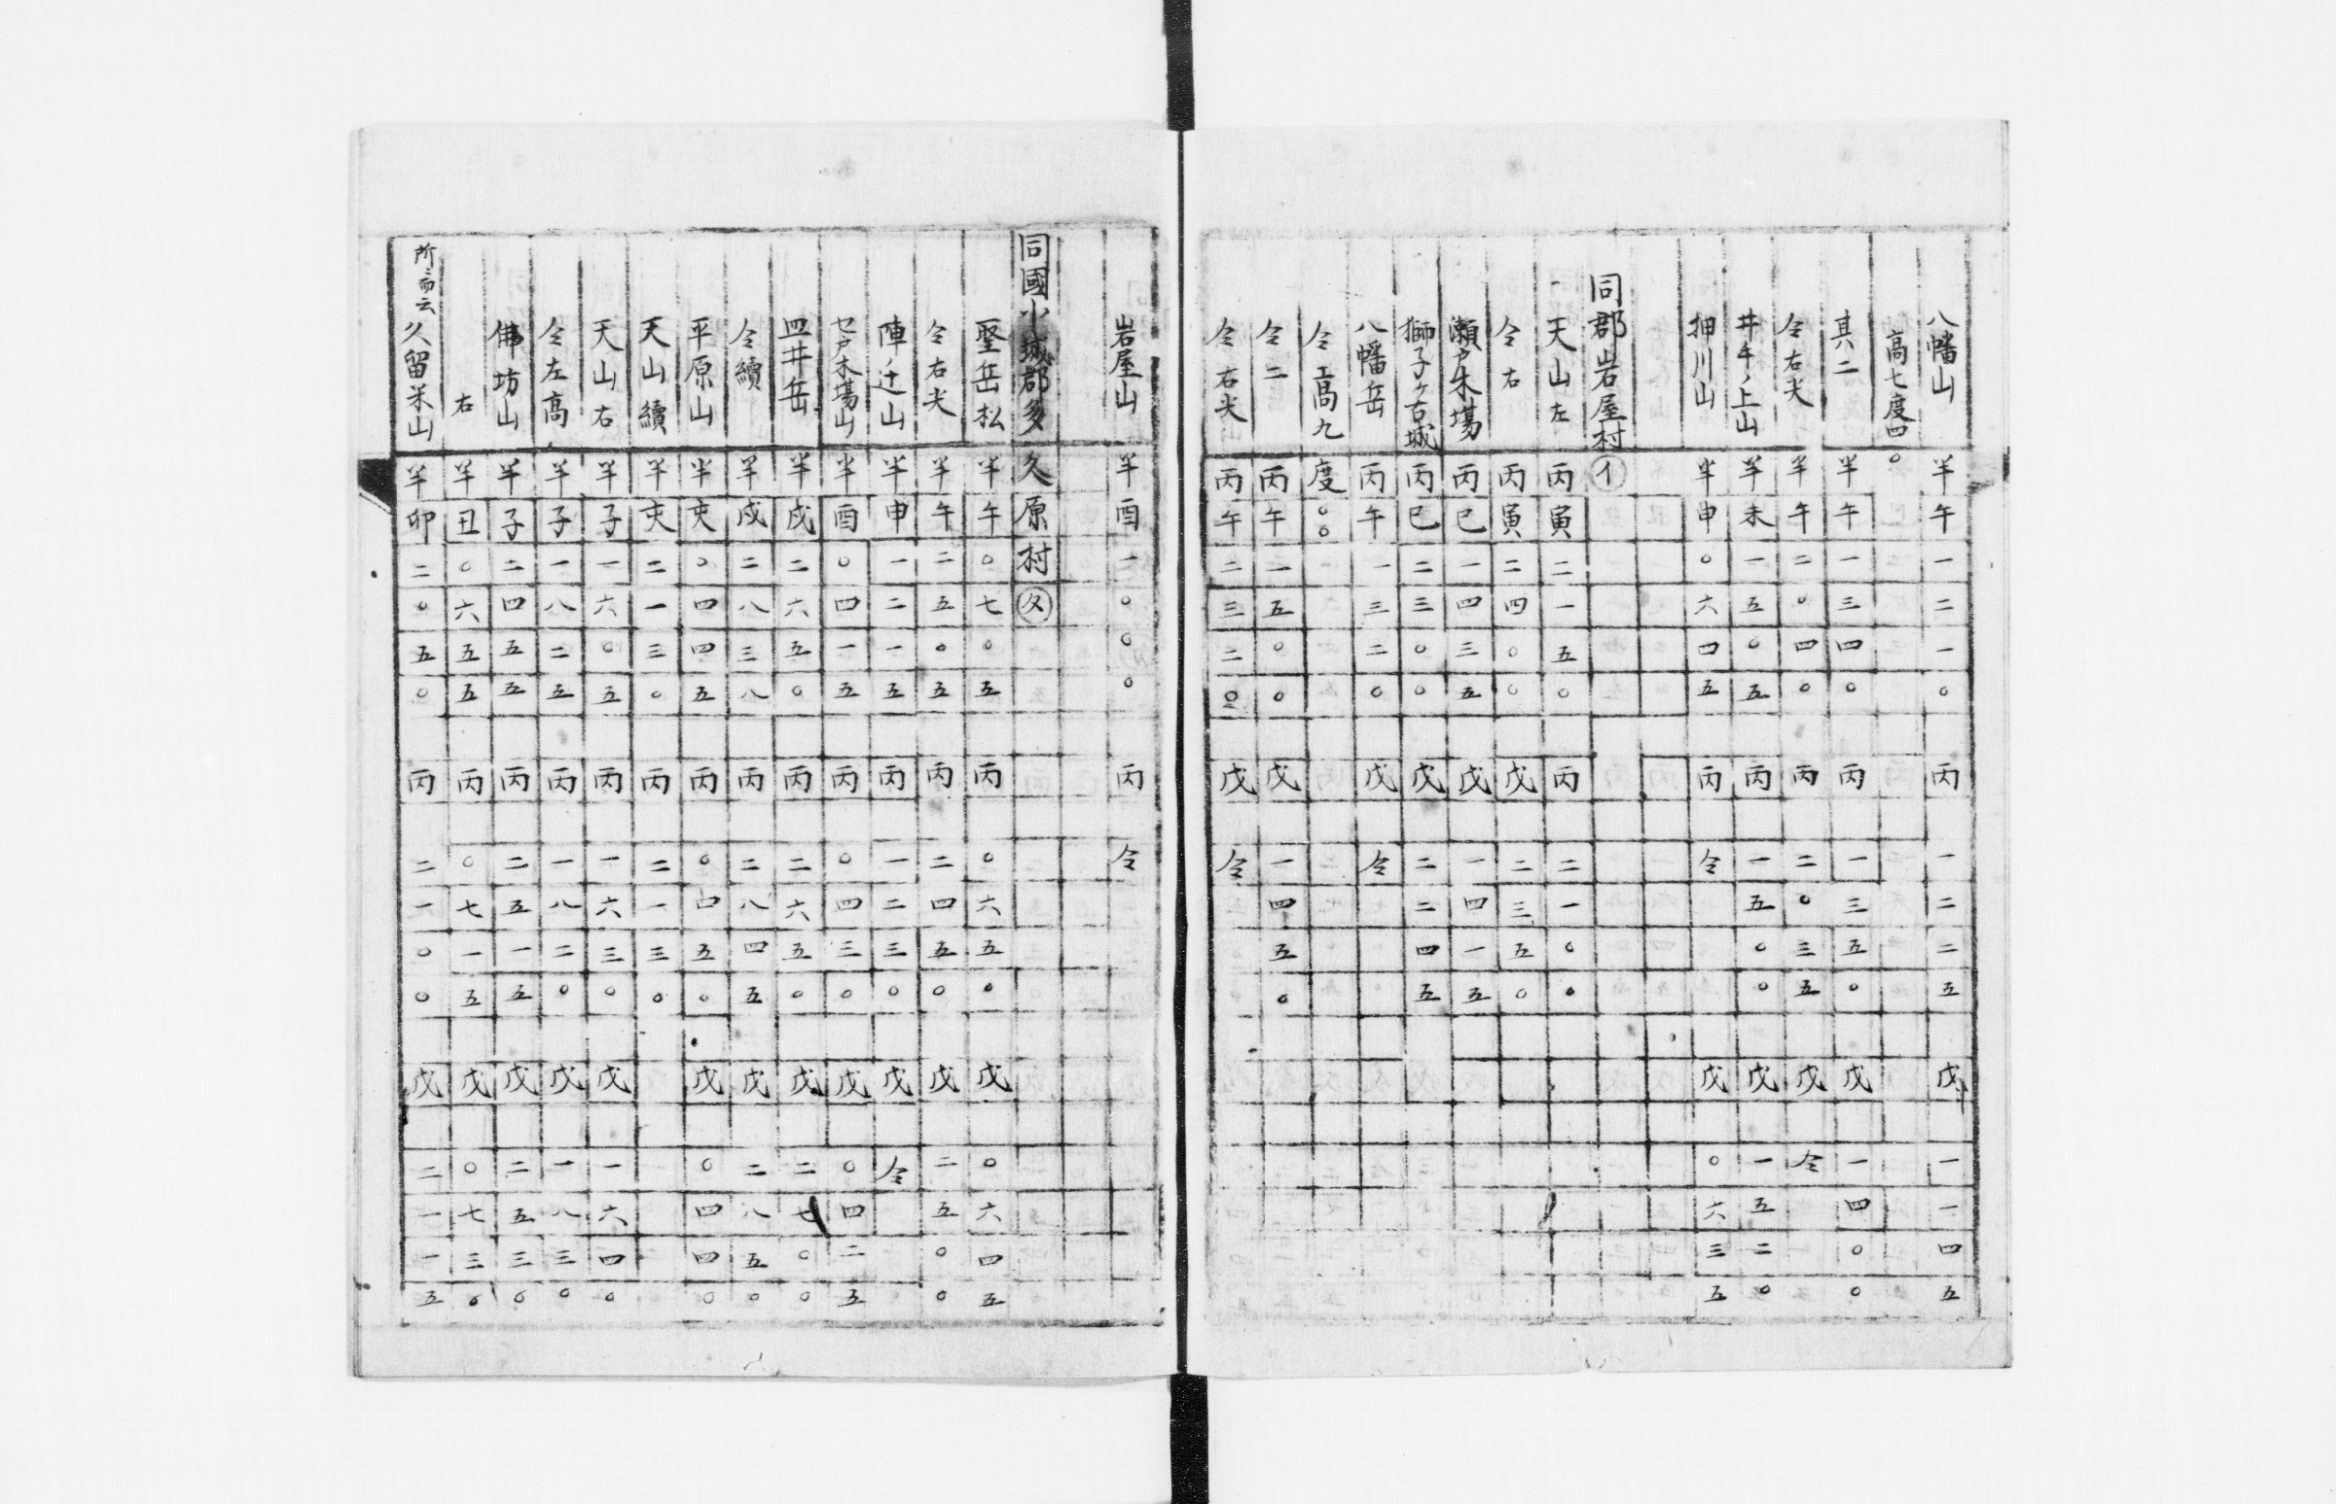 八幡山 半午一二一〇 丙一二二五 戊一一四五
高七度四〇
其二 半午一三四〇 丙一三五〇 戊一四〇〇
仝右尖 半午二〇四〇 丙二〇三五 戊仝
井手ノ上山 半未一五〇五 丙一五〇〇 戊一五二〇
押川山 半申〇六四五 丙仝 戊〇六三五
同郡岩屋村 イ
天山左 丙寅二一五〇 丙二一〇〇
仝右 丙寅二四〇〇 戊二三五〇
瀬戸木場 丙巳一四三五 戊一四一五
獅子ヶ古城 丙巳二三〇〇 戊二二四五
八幡岳 丙午一三二〇 戊仝
仝高九度〇〇
仝二 丙午一五〇〇 戊一四五〇
仝右尖 丙午二三二〇 戊仝
岩屋山 半酉一〇〇〇 丙仝
同國小城郡多久原村 タ
聖岳松 半午〇七〇五 丙〇六五〇 戊〇六四五
仝右尖 半午二五〇五 丙二四五〇 戊二五〇〇
陣ノ辻山 半申一二一五 丙一二三〇 戊仝
セ戸木場山 半酉〇四一五 丙〇四三〇 戊〇四二五
皿井岳 半戌二六五〇 丙二六五〇 戊二七〇〇
仝續 半戌二八三八 丙二八四五 戊二八五〇
平原山 半亥〇四四五 丙〇四五〇 戊〇四四〇
天山續 半亥二一三〇 丙二一三〇
天山右 半子一六〇五 丙一六三〇 戊一六四〇
仝左高 半子一八二五 丙一八二〇 戊一八三〇
佛坊山 半子二四五五 丙二五一五 戊二五三〇
右 半丑〇六五五 丙〇七一五 戊〇七三〇
所ニ而云久留米山 半卯二〇五〇 丙二一〇〇 戊二一一五